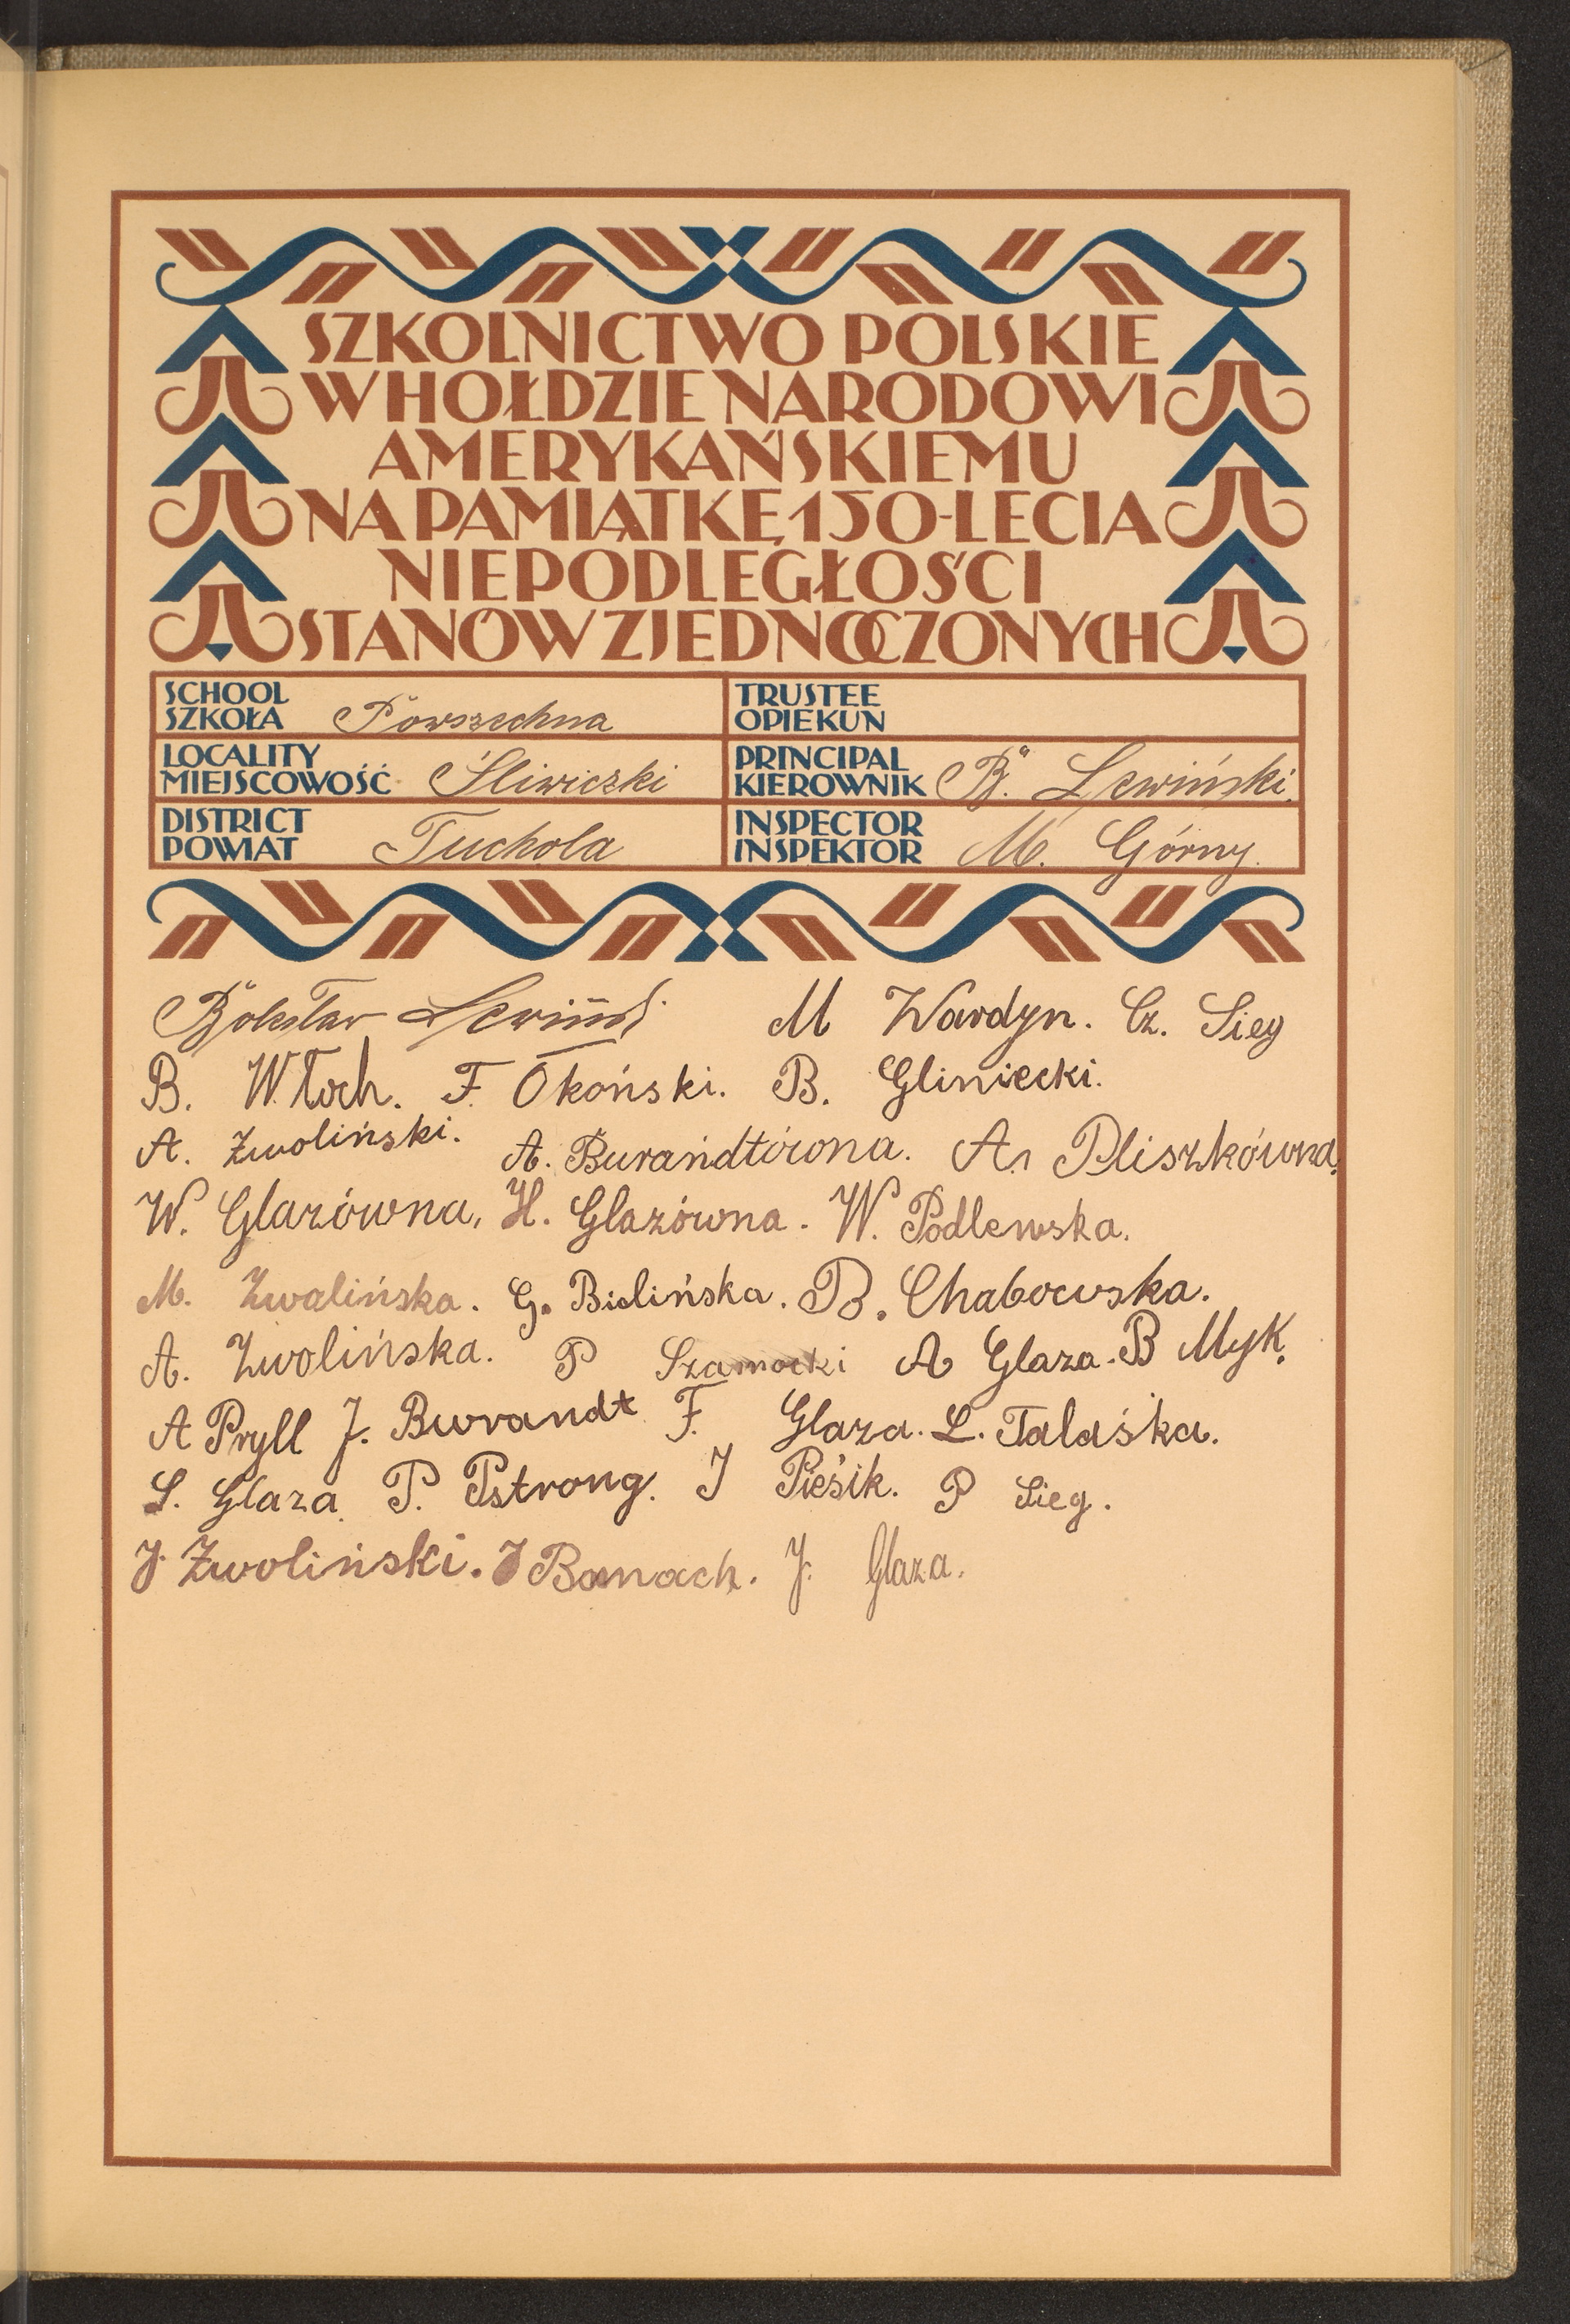 SZKOLNICTWO POLSKIE
W HOŁDZIE NARODOWI
AMERYKAŃSKIEMU
NA PAMIĄTKĘ 150-LECIA
NIEPODLEGŁOŚCI
STANÓW ZJEDNOCZONYCH
SCHOOL
SZKOŁA Powszechna
TRUSTEE
OPIEKUN
LOCALITY
MIEJSCOWOŚĆ Śliwiczki
PRINCIPAL
KIEROWNIK B. Lewiński.
DISTRICT
POWIAT Tuchola
INSPECTOR
INSPEKTOR M. Górny.
Bolesław Lewiński M Wardyn. Cz. Sieg
B. Włoch. F. Okoński. B. Gliniecki.
A. Zwoliński. A. Burańdtówna. A. Pliszkówna.
W. Glazówna, H. Glazówna. W. Podlewska.
M. Zwalińska. G. Bielińska. B. Chabowska.
A. Zwolińska. P Szamocki A Glaza. B Myk.
A Pryll J. Burandt F. Glaza. L. Talaśka.
S. Glaza. P. Pstrong. J Pieśik. P Sieg.
J. Zwoliński. J Banach. J. Glaza.